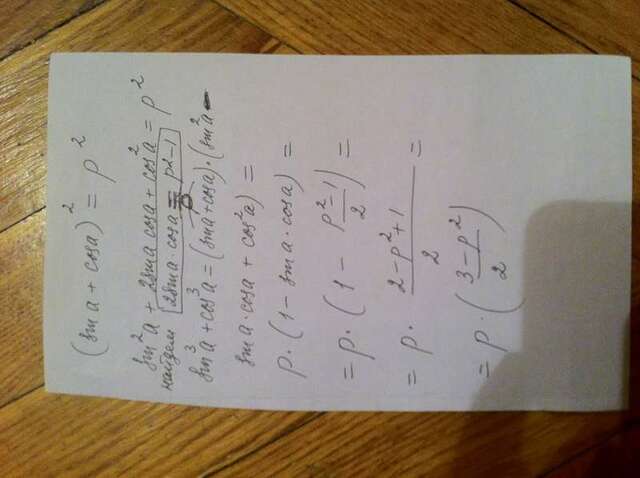 (sin a + cos a)² = p²
sin²a + 2sin a cos a + cos²a = p²
найдем 2sin a · cos a = p²-1
sin³a + cos³a = (sin a + cos a) · (sin²a -
sin a · cos a + cos²a) =
p · (1 - sin a · cos a) =
= p · (1 - (p²-1)/2) =
= p · (2-p²+1)/2 =
= p · ((3-p²)/2)